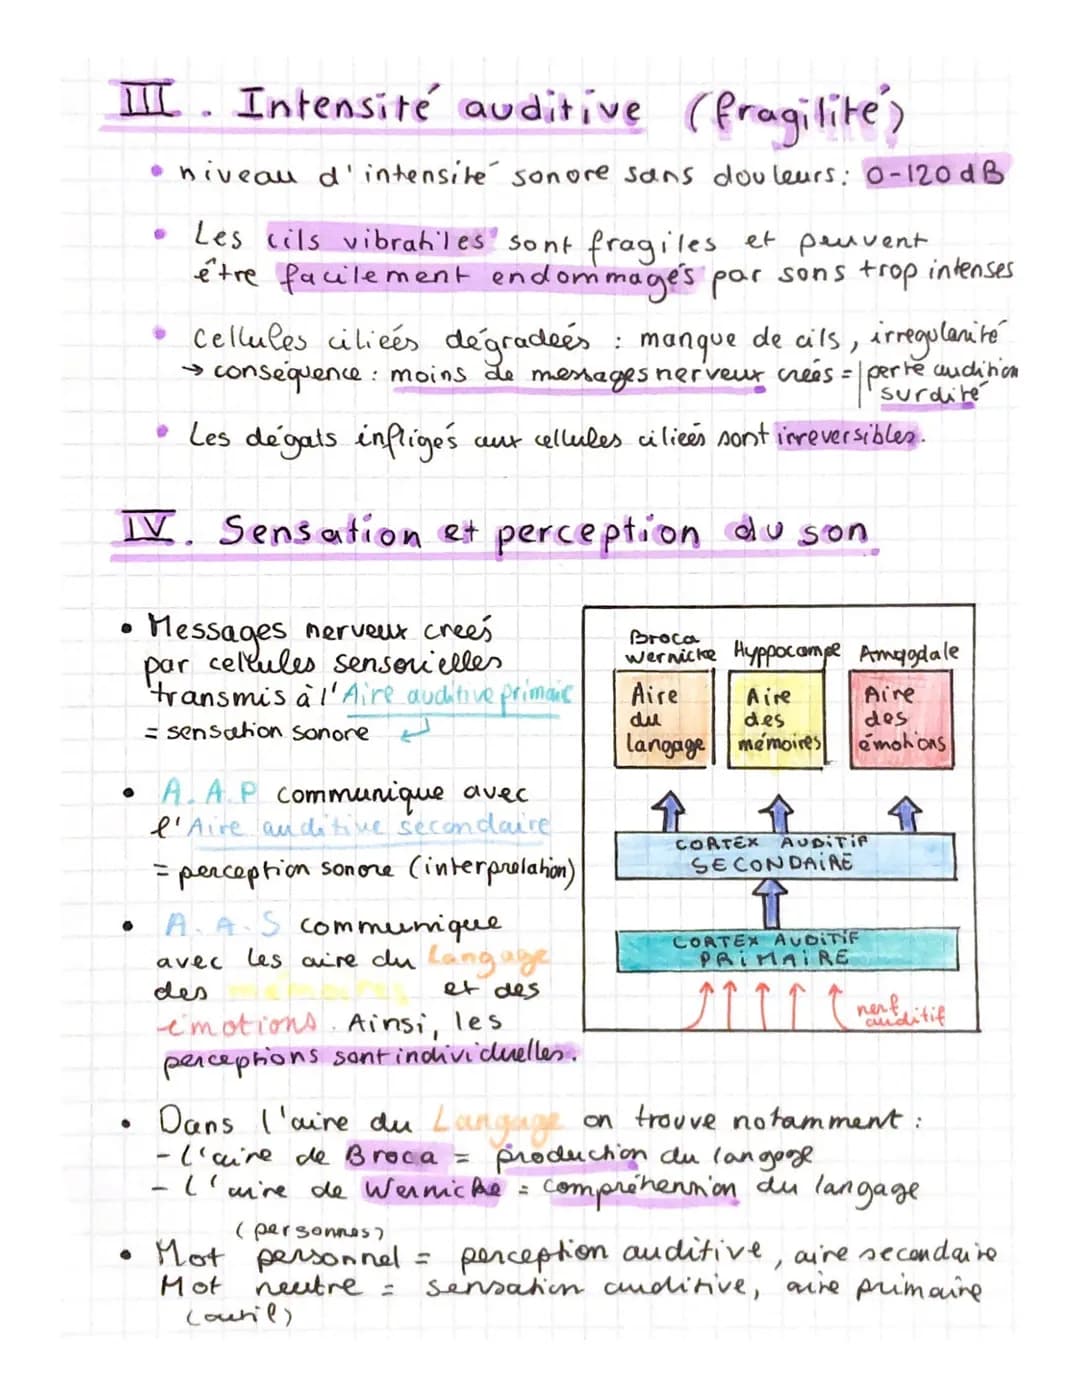 III. Intensité auditive (fragilité)
• niveau d'intensité sonore sans douleurs: 0-120 dB
• Les cils vibratiles sont fragiles et peuvent
être facilement endommagés par sons trop intenses
• Cellules ciliées dégradées : manque de cils, irregularité
→ conséquence : moins de messages nerveux créés = perte audition
surdité
• Les dégats infligés aux cellules ciliées sont irreversibles.
IV. Sensation et perception du son
• Messages nerveux creés
par cellules sensorielles
transmis à l'Aire auditive primaire
= sensation sonore
• A.A.P communique avec
l'Aire auditive secondaire
= perception sonore (interprétation)
• A.A.S communique
avec les aire du Langage
des mémoires et des
émotions. Ainsi, les
perceptions sont individuelles.
Broca
Wernicke
Hyppocampe
Amygdale
Aire
du
langage
Aire
des
mémoires
Aire
des
émotions
CORTEX AUDITIF
SECONDAIRE
CORTEX AUDITIF
PRIMAIRE
nerf
auditif
• Dans l'aire du Langage on trouve notamment :
- l'aire de Broca = production du langage
- l'aire de Wernicke = compréhension du langage
(personnes)
• Mot personnel = perception auditive, aire secondaire
Mot neutre = sensation auditive, aire primaire
(outil)